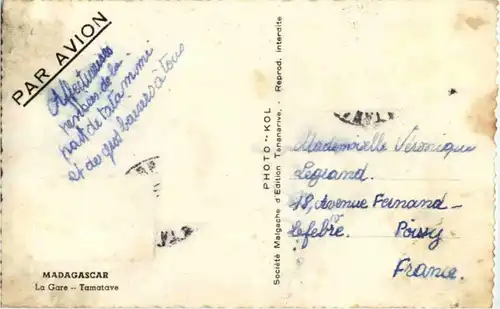 PAR AVION
Affectueuses
pensées de la
part de tata mimi
et de gros baisers à tous
MADAGASCAR
La Gare -- Tamatave
PHOTO - KOL
Société Malgache d'Édition Tananarive. - Reprod. interdite
Mademoiselle Véronique
Legrand.
18, Avenue Fernand-
Lefebre. Poissy
France.